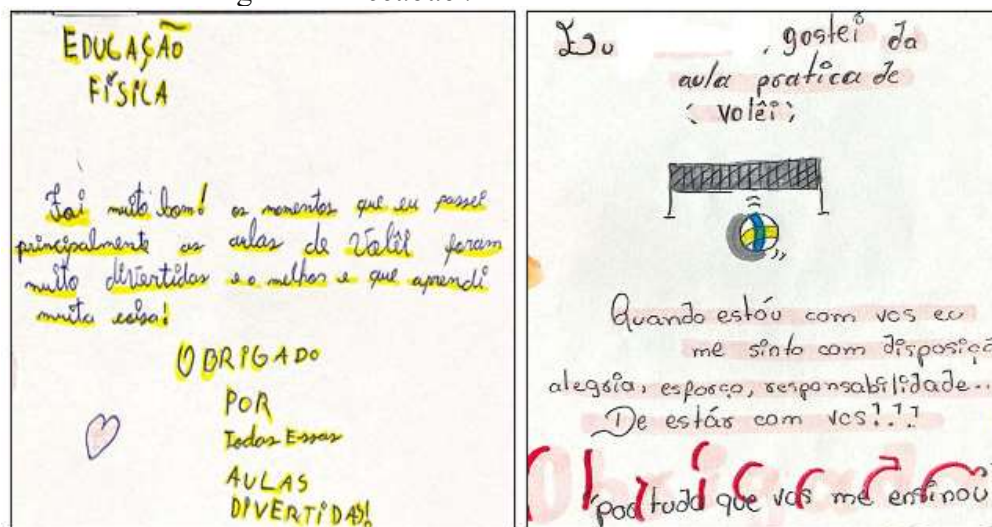 EDUCAÇÃO
FÍSICA
Foi muito bom! os momentos que eu passei
principalmente as aulas de Volêi foram
muito divertidas e o melhor e que aprendi
muita coisa!
OBRIGADO
POR
Todas Essas
AULAS
DIVERTIDAS!
Eu , gostei da
aula pratica de
volêi;
Quando estóu com vcs eu
me sinto com disposiçã
alegria, esforço, responsabilidade...
De estár com vcs!!!
Obrigado
por tudo que vcs me ensinou